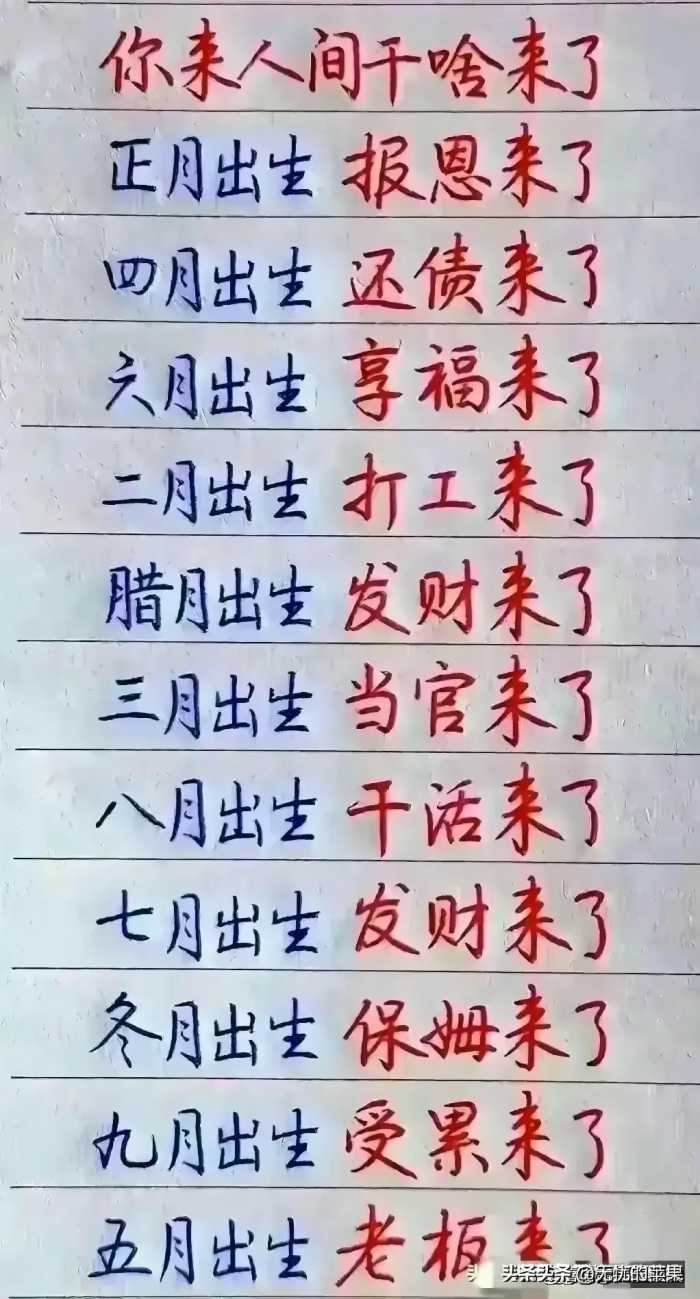 你来人间干啥来了
正月出生 报恩来了
四月出生 还债来了
六月出生 享福来了
二月出生 打工来了
腊月出生 发财来了
三月出生 当官来了
八月出生 干活来了
七月出生 发财来了
冬月出生 保姆来了
九月出生 受累来了
五月出生 老板来了
头条 @无忧的苹果